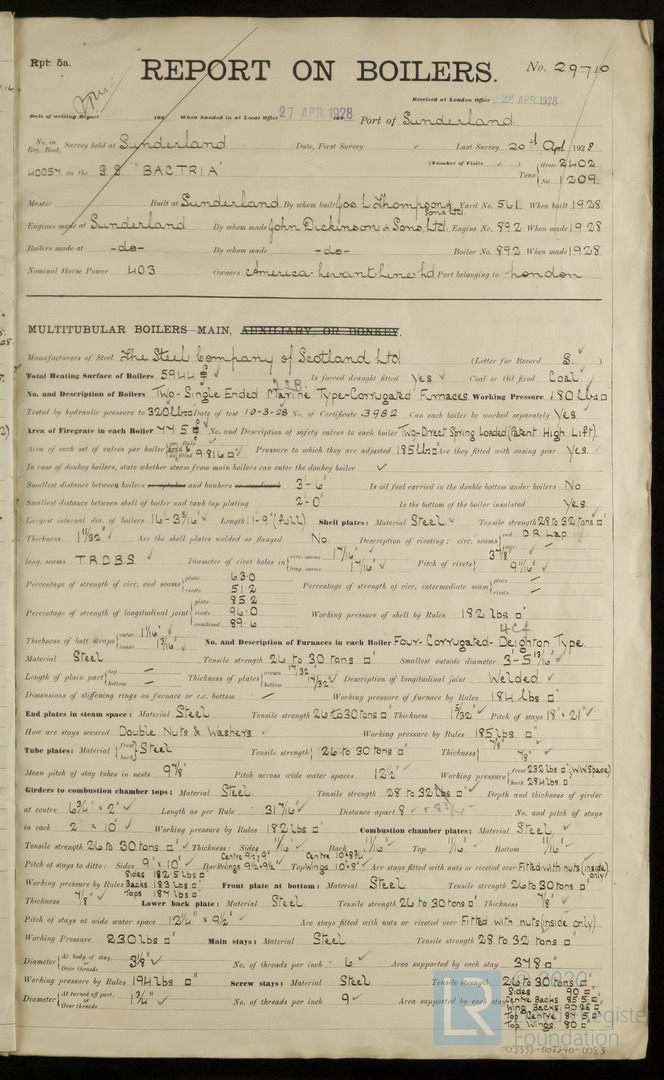 Rpt. 5a.
REPORT ON BOILERS.
No. 29710
Received at London Office 28 APR 1928
Date of writing Report 192 When handed in at Local Office 27 APR 1928 Port of Sunderland
No. in Reg. Book. Survey held at Sunderland Date, First Survey Last Survey 20th Apl 1928
40054 on the S.S. "BACTRIA" (Number of Visits ) Tons Gross 2402 Net 1209
Master Built at Sunderland By whom built Jos L Thompson & Sons Ltd Yard No. 561 When built 1928
Engines made at Sunderland By whom made John Dickinson & Sons, Ltd Engine No. 892 When made 1928
Boilers made at -do- By whom made -do- Boiler No. 892 When made 1928
Nominal Horse Power 403 Owners America Levant Line Ld Port belonging to London
MULTITUBULAR BOILERS—MAIN, AUXILIARY, OR DONKEY.
Manufacturers of Steel The Steel Company of Scotland Ltd (Letter for Record S. )
Total Heating Surface of Boilers 5944 Is forced draught fitted Yes Coal or Oil fired Coal
No. and Description of Boilers Two-Single Ended Marine Type-Corrugated Furnaces Working Pressure 180 lbs □"
Tested by hydraulic pressure to 320 lbs □" Date of test 10-3-28 No. of Certificate 3982 Can each boiler be worked separately Yes
Area of Firegrate in each Boiler 77.5 No. and Description of safety valves to each boiler Two-Direct Spring Loaded (Patent High Lift).
Area of each set of valves per boiler per Rule as fitted 9.816 □" Pressure to which they are adjusted 185 lbs □" Are they fitted with easing gear Yes.
In case of donkey boilers, state whether steam from main boilers can enter the donkey boiler ✓
Smallest distance between boilers or uptakes and bunkers or woodwork 3'-6" Is oil fuel carried in the double bottom under boilers No
Smallest distance between shell of boiler and tank top plating 2'-0" Is the bottom of the boiler insulated Yes
Largest internal dia. of boilers 16'-3 5/16" Length 11'-9" (full) Shell plates: Material Steel Tensile strength 28 to 32 tons □"
Thickness 1 11/32" Are the shell plates welded or flanged No. Description of riveting: circ. seams end D.R Lap inter. –
long. seams T.R.D.B.S. Diameter of rivet holes in circ. seams 1 7/16" long. seams 1 7/16" Pitch of rivets 3 7/8" 9 9/16"
Percentage of strength of circ. end seams plate 63.0 rivets 51.2 Percentage of strength of circ. intermediate seam plate – rivets –
Percentage of strength of longitudinal joint plate 85.2 rivets 96.0 combined 89.6 Working pressure of shell by Rules 182 lbs □"
Thickness of butt straps outer 1 1/16" inner 1 3/16" No. and Description of Furnaces in each Boiler Four-Corrugated-Deighton Type
Material Steel Tensile strength 26 to 30 tons □" Smallest outside diameter 3'-5 13/16"
Length of plain part top – bottom – Thickness of plates crown 17/32" bottom 17/32" Description of longitudinal joint Welded
Dimensions of stiffening rings on furnace or c.c. bottom – Working pressure of furnace by Rules 184 lbs □"
End plates in steam space: Material Steel Tensile strength 26 to 30 tons □" Thickness 1 5/32" Pitch of stays 18" × 21"
How are stays secured Double Nuts & Washers Working pressure by Rules 185 lbs □"
Tube plates: Material front back Steel Tensile strength 26 to 30 tons □" Thickness 7/8" 7/8"
Mean pitch of stay tubes in nests 9 7/8" Pitch across wide water spaces 12 1/2" Working pressure front 232 lbs □" (W W Space) back 284 lbs □"
Girders to combustion chamber tops: Material Steel Tensile strength 28 to 32 lbs □" Depth and thickness of girder
at centre 6 3/4" × 2" Length as per Rule 31 7/16" Distance apart 8 No. and pitch of stays
in each 2 × 10" Working pressure by Rules 182 lbs □" Combustion chamber plates: Material Steel
Tensile strength 26 to 30 tons □" Thickness: Sides 11/16" Back 11/16" Top 11/16" Bottom 11/16"
Pitch of stays to ditto: Sides 9" × 10" Back Centre 9 1/2" × 9" Wings 9 1/2" × 9 1/2" Top Centre 10" × 8 3/4" Wings 10" × 8" Are stays fitted with nuts or riveted over Fitted with nuts (inside only)
Working pressure by Rules Sides 182.5 lbs □" Backs 183 lbs □" Tops 187 lbs □" Front plate at bottom: Material Steel Tensile strength 26 to 30 tons □"
Thickness 7/8" Lower back plate: Material Steel Tensile strength 26 to 30 tons □" Thickness 7/8"
Pitch of stays at wide water space 12 1/4" × 9 1/2" Are stays fitted with nuts or riveted over Fitted with nuts (inside only)
Working Pressure 230 lbs □" Main stays: Material Steel Tensile strength 28 to 32 tons □"
Diameter At body of stay, or Over threads 3 1/8" No. of threads per inch 6 Area supported by each stay 378 □"
Working pressure by Rules 194 lbs □" Screw stays: Material Steel Tensile strength 26 to 30 tons □"
Diameter At turned off part, or Over threads 1 3/4" No. of threads per inch 9 Area supported by each stay Sides 90 □"
Centre Backs 85.5 □"
Wing Backs 90.25 □"
Top Centre 87.5 □"
Top Wings 80 □"
LR
© 2020
Foundation